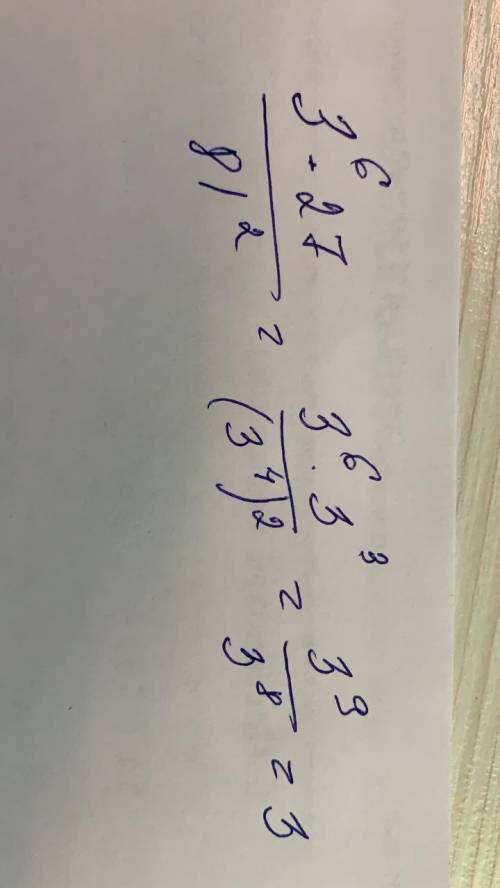 \frac{3^6 \cdot 27}{81^2} = \frac{3^6 \cdot 3^3}{(3^4)^2} = \frac{3^9}{3^8} = 3